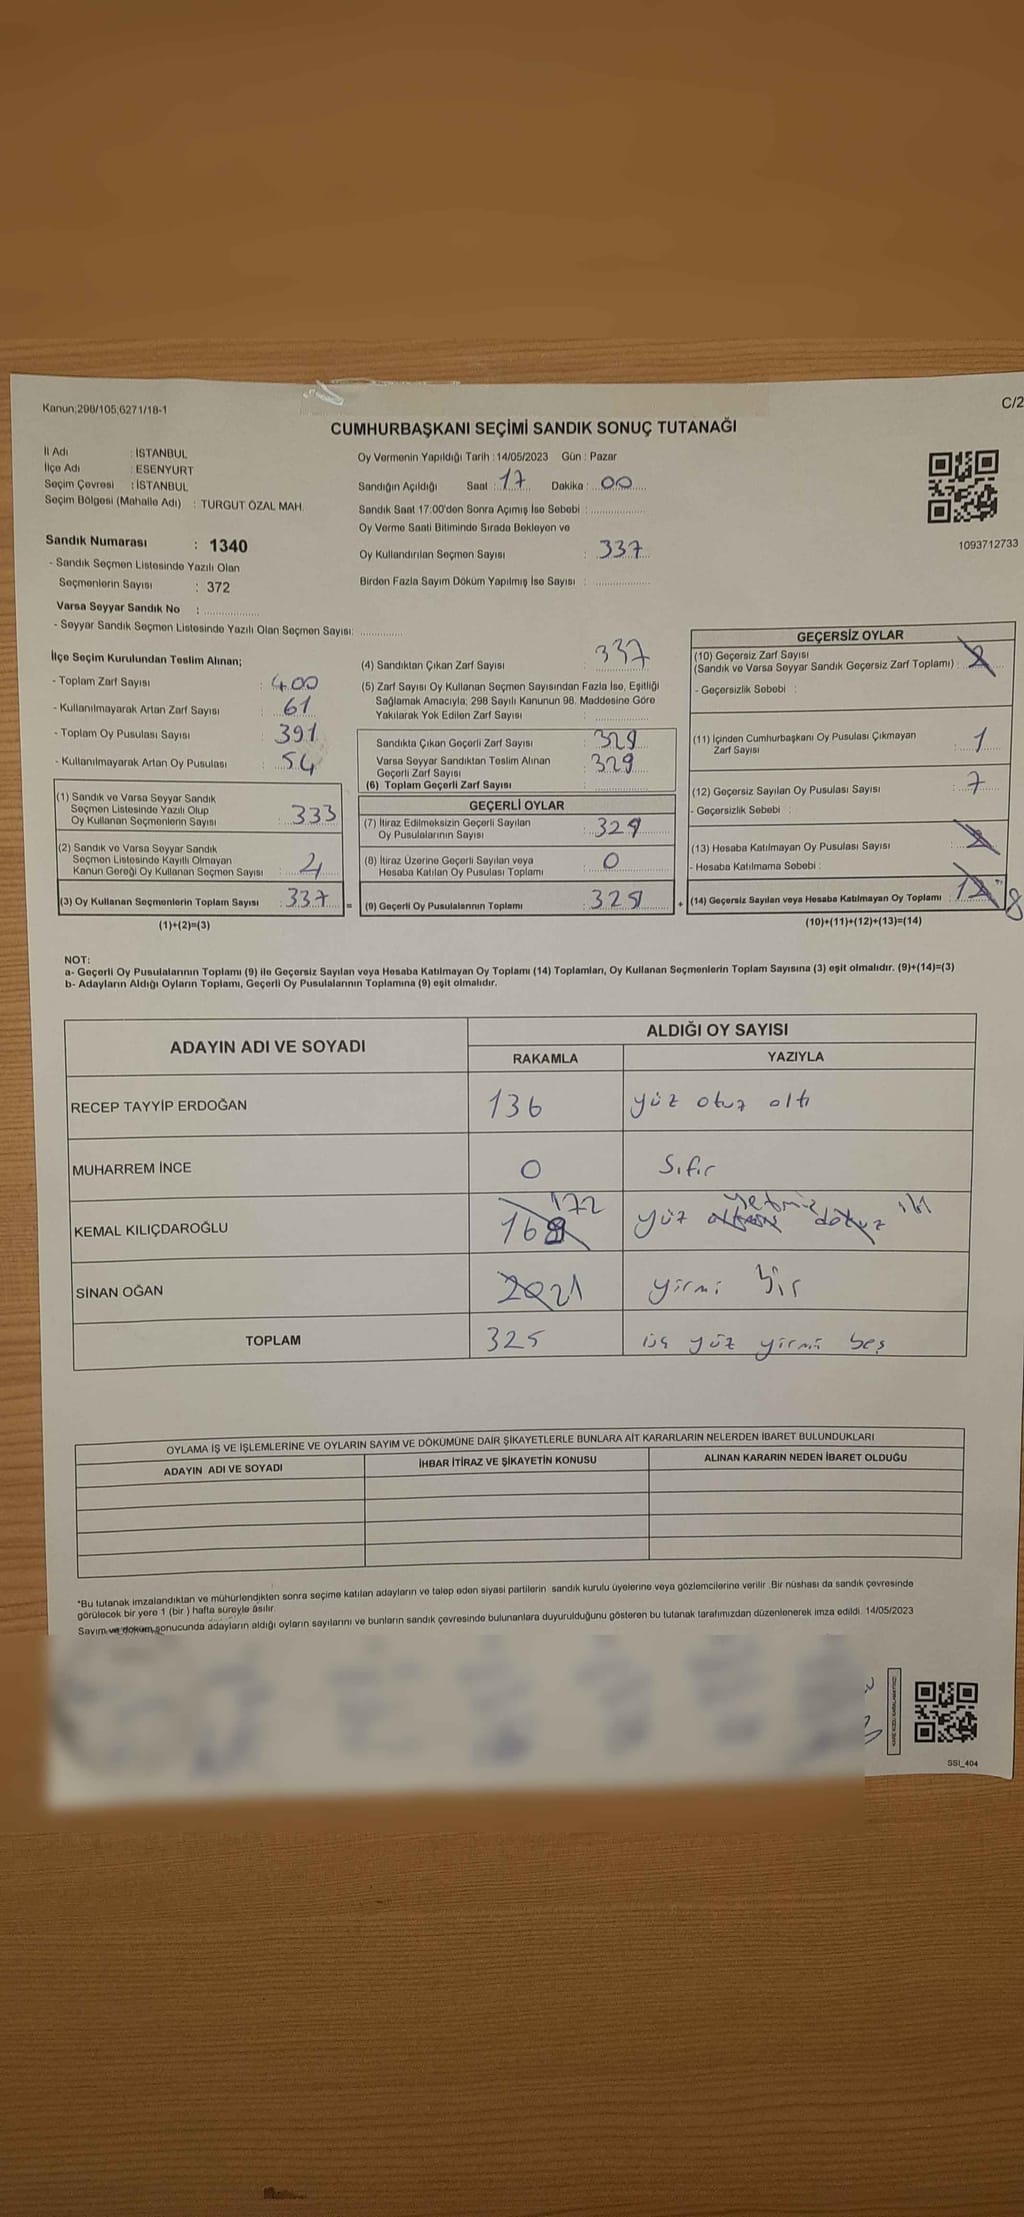 Kanun;298/105,6271/18-1
C/2
CUMHURBAŞKANI SEÇİMİ SANDIK SONUÇ TUTANAĞI
İl Adı : İSTANBUL
İlçe Adı : ESENYURT
Seçim Çevresi : İSTANBUL
Seçim Bölgesi (Mahalle Adı) : TURGUT ÖZAL MAH.
Sandık Numarası : 1340
- Sandık Seçmen Listesinde Yazılı Olan
Seçmenlerin Sayısı : 372
Varsa Seyyar Sandık No : ..................
- Seyyar Sandık Seçmen Listesinde Yazılı Olan Seçmen Sayısı: ..............
Oy Vermenin Yapıldığı Tarih : 14/05/2023 Gün : Pazar
Sandığın Açıldığı Saat : 17 Dakika : 00
Sandık Saat 17:00'den Sonra Açımış İse Sebebi : ..................
Oy Verme Saati Bitiminde Sırada Bekleyen ve
Oy Kullandırılan Seçmen Sayısı : 337
Birden Fazla Sayım Döküm Yapılmış İse Sayısı : ..................
1093712733
İlçe Seçim Kurulundan Teslim Alınan;
- Toplam Zarf Sayısı : 400
- Kullanılmayarak Artan Zarf Sayısı : 61
- Toplam Oy Pusulası Sayısı : 391
- Kullanılmayarak Artan Oy Pusulası : 54
(1) Sandık ve Varsa Seyyar Sandık
Seçmen Listesinde Yazılı Olup
Oy Kullanan Seçmenlerin Sayısı : 333
(2) Sandık ve Varsa Seyyar Sandık
Seçmen Listesinde Kayıtlı Olmayan
Kanun Gereği Oy Kullanan Seçmen Sayısı : 4
(3) Oy Kullanan Seçmenlerin Toplam Sayısı : 337 =
(1)+(2)=(3)
(4) Sandıktan Çıkan Zarf Sayısı : 337
(5) Zarf Sayısı Oy Kullanan Seçmen Sayısından Fazla İse, Eşitliği
Sağlamak Amacıyla; 298 Sayılı Kanunun 98. Maddesine Göre
Yakılarak Yok Edilen Zarf Sayısı : ..................
Sandıkta Çıkan Geçerli Zarf Sayısı : 329
Varsa Seyyar Sandıktan Teslim Alınan
Geçerli Zarf Sayısı : 329
(6) Toplam Geçerli Zarf Sayısı : ..................
GEÇERLİ OYLAR
(7) İtiraz Edilmeksizin Geçerli Sayılan
Oy Pusulalarının Sayısı : 329
(8) İtiraz Üzerine Geçerli Sayılan veya
Hesaba Katılan Oy Pusulası Toplamı : 0
(9) Geçerli Oy Pusulalarının Toplamı : +
GEÇERSİZ OYLAR
(10) Geçersiz Zarf Sayısı
(Sandık ve Varsa Seyyar Sandık Geçersiz Zarf Toplamı) : 2
- Geçersizlik Sebebi :
(11) İçinden Cumhurbaşkanı Oy Pusulası Çıkmayan
Zarf Sayısı : 1
(12) Geçersiz Sayılan Oy Pusulası Sayısı : 7
- Geçersizlik Sebebi :
(13) Hesaba Katılmayan Oy Pusulası Sayısı : 2
- Hesaba Katılmama Sebebi :
(14) Geçersiz Sayılan veya Hesaba Katılmayan Oy Toplamı : 12 8
(10)+(11)+(12)+(13)=(14)
NOT:
a- Geçerli Oy Pusulalarının Toplamı (9) ile Geçersiz Sayılan veya Hesaba Katılmayan Oy Toplamı (14) Toplamları, Oy Kullanan Seçmenlerin Toplam Sayısına (3) eşit olmalıdır. (9)+(14)=(3)
b- Adayların Aldığı Oyların Toplamı, Geçerli Oy Pusulalarının Toplamına (9) eşit olmalıdır.
ADAYIN ADI VE SOYADI
ALDIĞI OY SAYISI
RAKAMLA YAZIYLA
RECEP TAYYİP ERDOĞAN 136 yüz otuz altı
MUHARREM İNCE 0 Sıfır
172 yetmiş iki
KEMAL KILIÇDAROĞLU yüz altmış dokuz
SİNAN OĞAN 20 21 yirmi bir
TOPLAM 325 üç yüz yirmi beş
OYLAMA İŞ VE İŞLEMLERİNE VE OYLARIN SAYIM VE DÖKÜMÜNE DAİR ŞİKAYETLERLE BUNLARA AİT KARARLARIN NELERDEN İBARET BULUNDUKLARI
ADAYIN ADI VE SOYADI İHBAR İTİRAZ VE ŞİKAYETİN KONUSU ALINAN KARARIN NEDEN İBARET OLDUĞU
*Bu tutanak imzalandıktan ve mühürlendikten sonra seçime katılan adayların ve talep eden siyasi partilerin sandık kurulu üyelerine veya gözlemcilerine verilir .Bir nüshası da sandık çevresinde
görülecek bir yere 1 (bir ) hafta süreyle asılır.
Sayım ve döküm sonucunda adayların aldığı oyların sayılarını ve bunların sandık çevresinde bulunanlara duyurulduğunu gösteren bu tutanak tarafımızdan düzenlenerek imza edildi. 14/05/2023
SSI_404